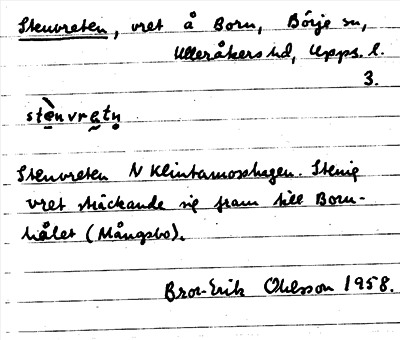 Stenvreten, vret å Born, Börje sn,
Ulleråkers hd, Upps. l.
3.
ste̱nvre̱tn̥
Stenvreten N Klintamosshagen. Stenig
vret sträckande sig fram till Born-
hålet (Mångsbo).
Bror-Erik Ohlsson 1958.